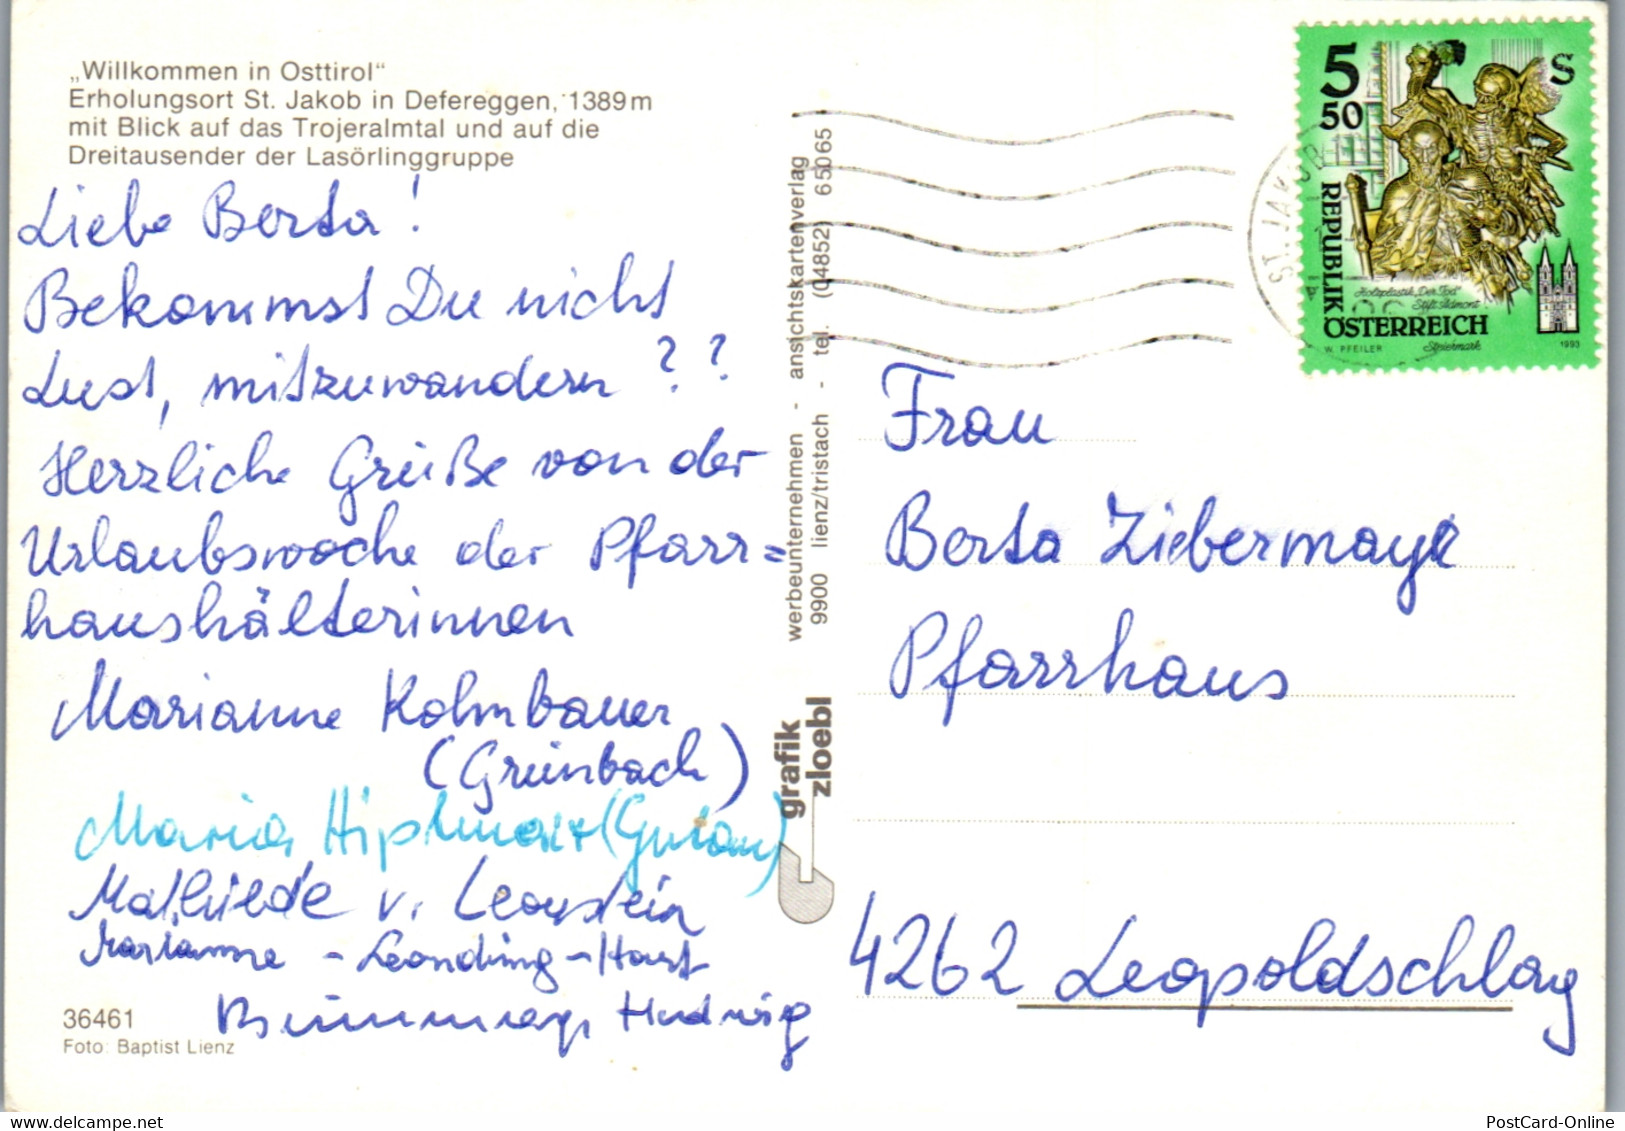 „Willkommen in Osttirol"
Erholungsort St. Jakob in Defereggen, 1389 m
mit Blick auf das Trojeralmtal und auf die
Dreitausender der Lasörlinggruppe
Liebe Berta!
Bekommst Du nicht
Lust, mitzuwandern??
Herzliche Grüße von der
Urlaubswoche der Pfarr=
haushälterinnen
Marianne Kohnbauer
(Grünbach)
Maria Hiplmair (Gutau)
Mathilde v. Leonstein
Marianne - Leonding - Hart
Hedwig
36461
Foto: Baptist Lienz
grafik
zloebl
werbeunternehmen - ansichtskartenverlag
9900 lienz/tristach - tel. (04852) 65065
ST. JAKOB
5 S
50
REPUBLIK
Holzplastik „Der Tod"
Stift Admont
ÖSTERREICH
W. PFEILER Steiermark 1993
Frau
Berta Ziebermayr
Pfarrhaus
4262 Leopoldschlag
www.delcampe.net
PostCard-Online